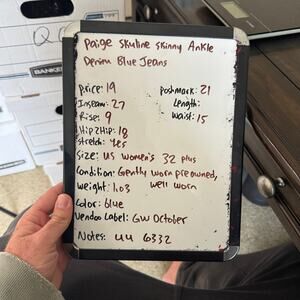 Paige Skyline Skinny Ankle
Denim Blue Jeans
Price: 19 Poshmark: 21
Inseam: 27 Length:
Rise: 9 Waist: 15
Hip2Hip: 18
Stretch: Yes
Size: US Women's 32 plus
Condition: Gently worn preowned,
well worn
Weight: 1.03
Color: blue
Vendoo Label: GW October
Notes: UU 6332
BANKER